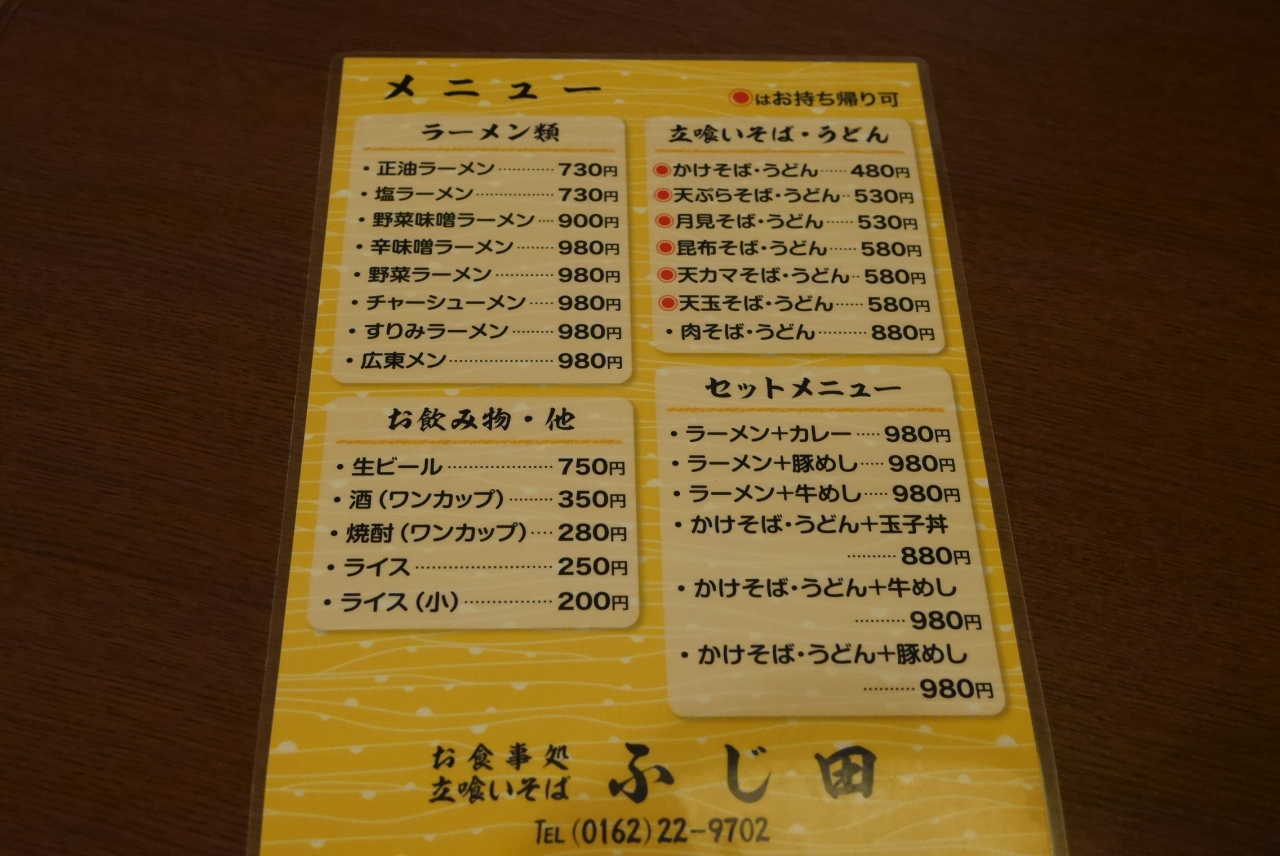 メニュー
●はお持ち帰り可
ラーメン類
・正油ラーメン…………730円
・塩ラーメン………………730円
・野菜味噌ラーメン…900円
・辛味噌ラーメン………980円
・野菜ラーメン…………980円
・チャーシューメン……980円
・すりみラーメン………980円
・広東メン…………………980円
お飲み物・他
・生ビール…………………750円
・酒(ワンカップ)………350円
・焼酎(ワンカップ)……280円
・ライス……………………250円
・ライス(小)……………200円
立喰いそば・うどん
●かけそば・うどん……480円
●天ぷらそば・うどん…530円
●月見そば・うどん……530円
●昆布そば・うどん……580円
●天カマそば・うどん…580円
●天玉そば・うどん……580円
・肉そば・うどん…………880円
セットメニュー
・ラーメン+カレー……980円
・ラーメン+豚めし……980円
・ラーメン+牛めし……980円
・かけそば・うどん+玉子丼
…………880円
・かけそば・うどん+牛めし
…………980円
・かけそば・うどん+豚めし
…………980円
お食事処
立喰いそば
ふじ田
TEL(0162)22-9702